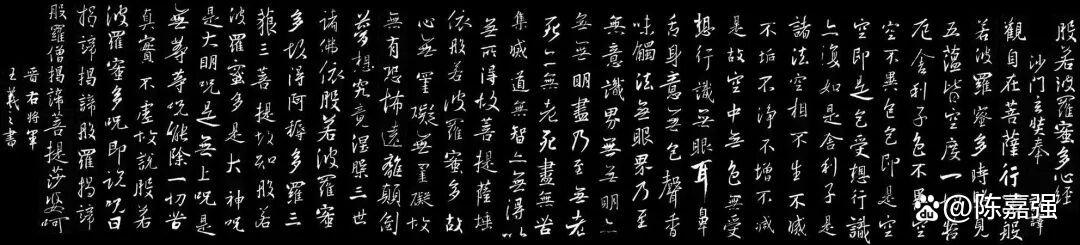 般若波羅蜜多心經
沙門玄奘奉 詔譯
觀自在菩薩行深般
若波羅蜜多時照見
五蘊皆空度一切苦
厄舍利子色不異空
空不異色色即是空
空即是色受想行識
亦復如是舍利子是
諸法空相不生不滅
不垢不淨不增不減
是故空中無色無受
想行識無眼耳鼻
舌身意無色聲香
味觸法無眼界乃至
無意識界無無明亦
無無明盡乃至無老
死亦無老死盡無苦
集滅道無智亦無得以
無所得故菩提薩埵
依般若波羅蜜多故
心無罣礙無罣礙故
無有恐怖遠離顛倒
夢想究竟涅槃三世
諸佛依般若波羅蜜
多故得阿耨多羅三
藐三菩提故知般若
波羅蜜多是大神呪
是大明呪是無上呪是
無等等呪能除一切苦
真實不虛故說般若
波羅蜜多呪即說呪曰
揭諦揭諦般羅揭諦
般羅僧揭諦菩提莎婆呵
晉右將軍
王羲之書
@陈嘉强